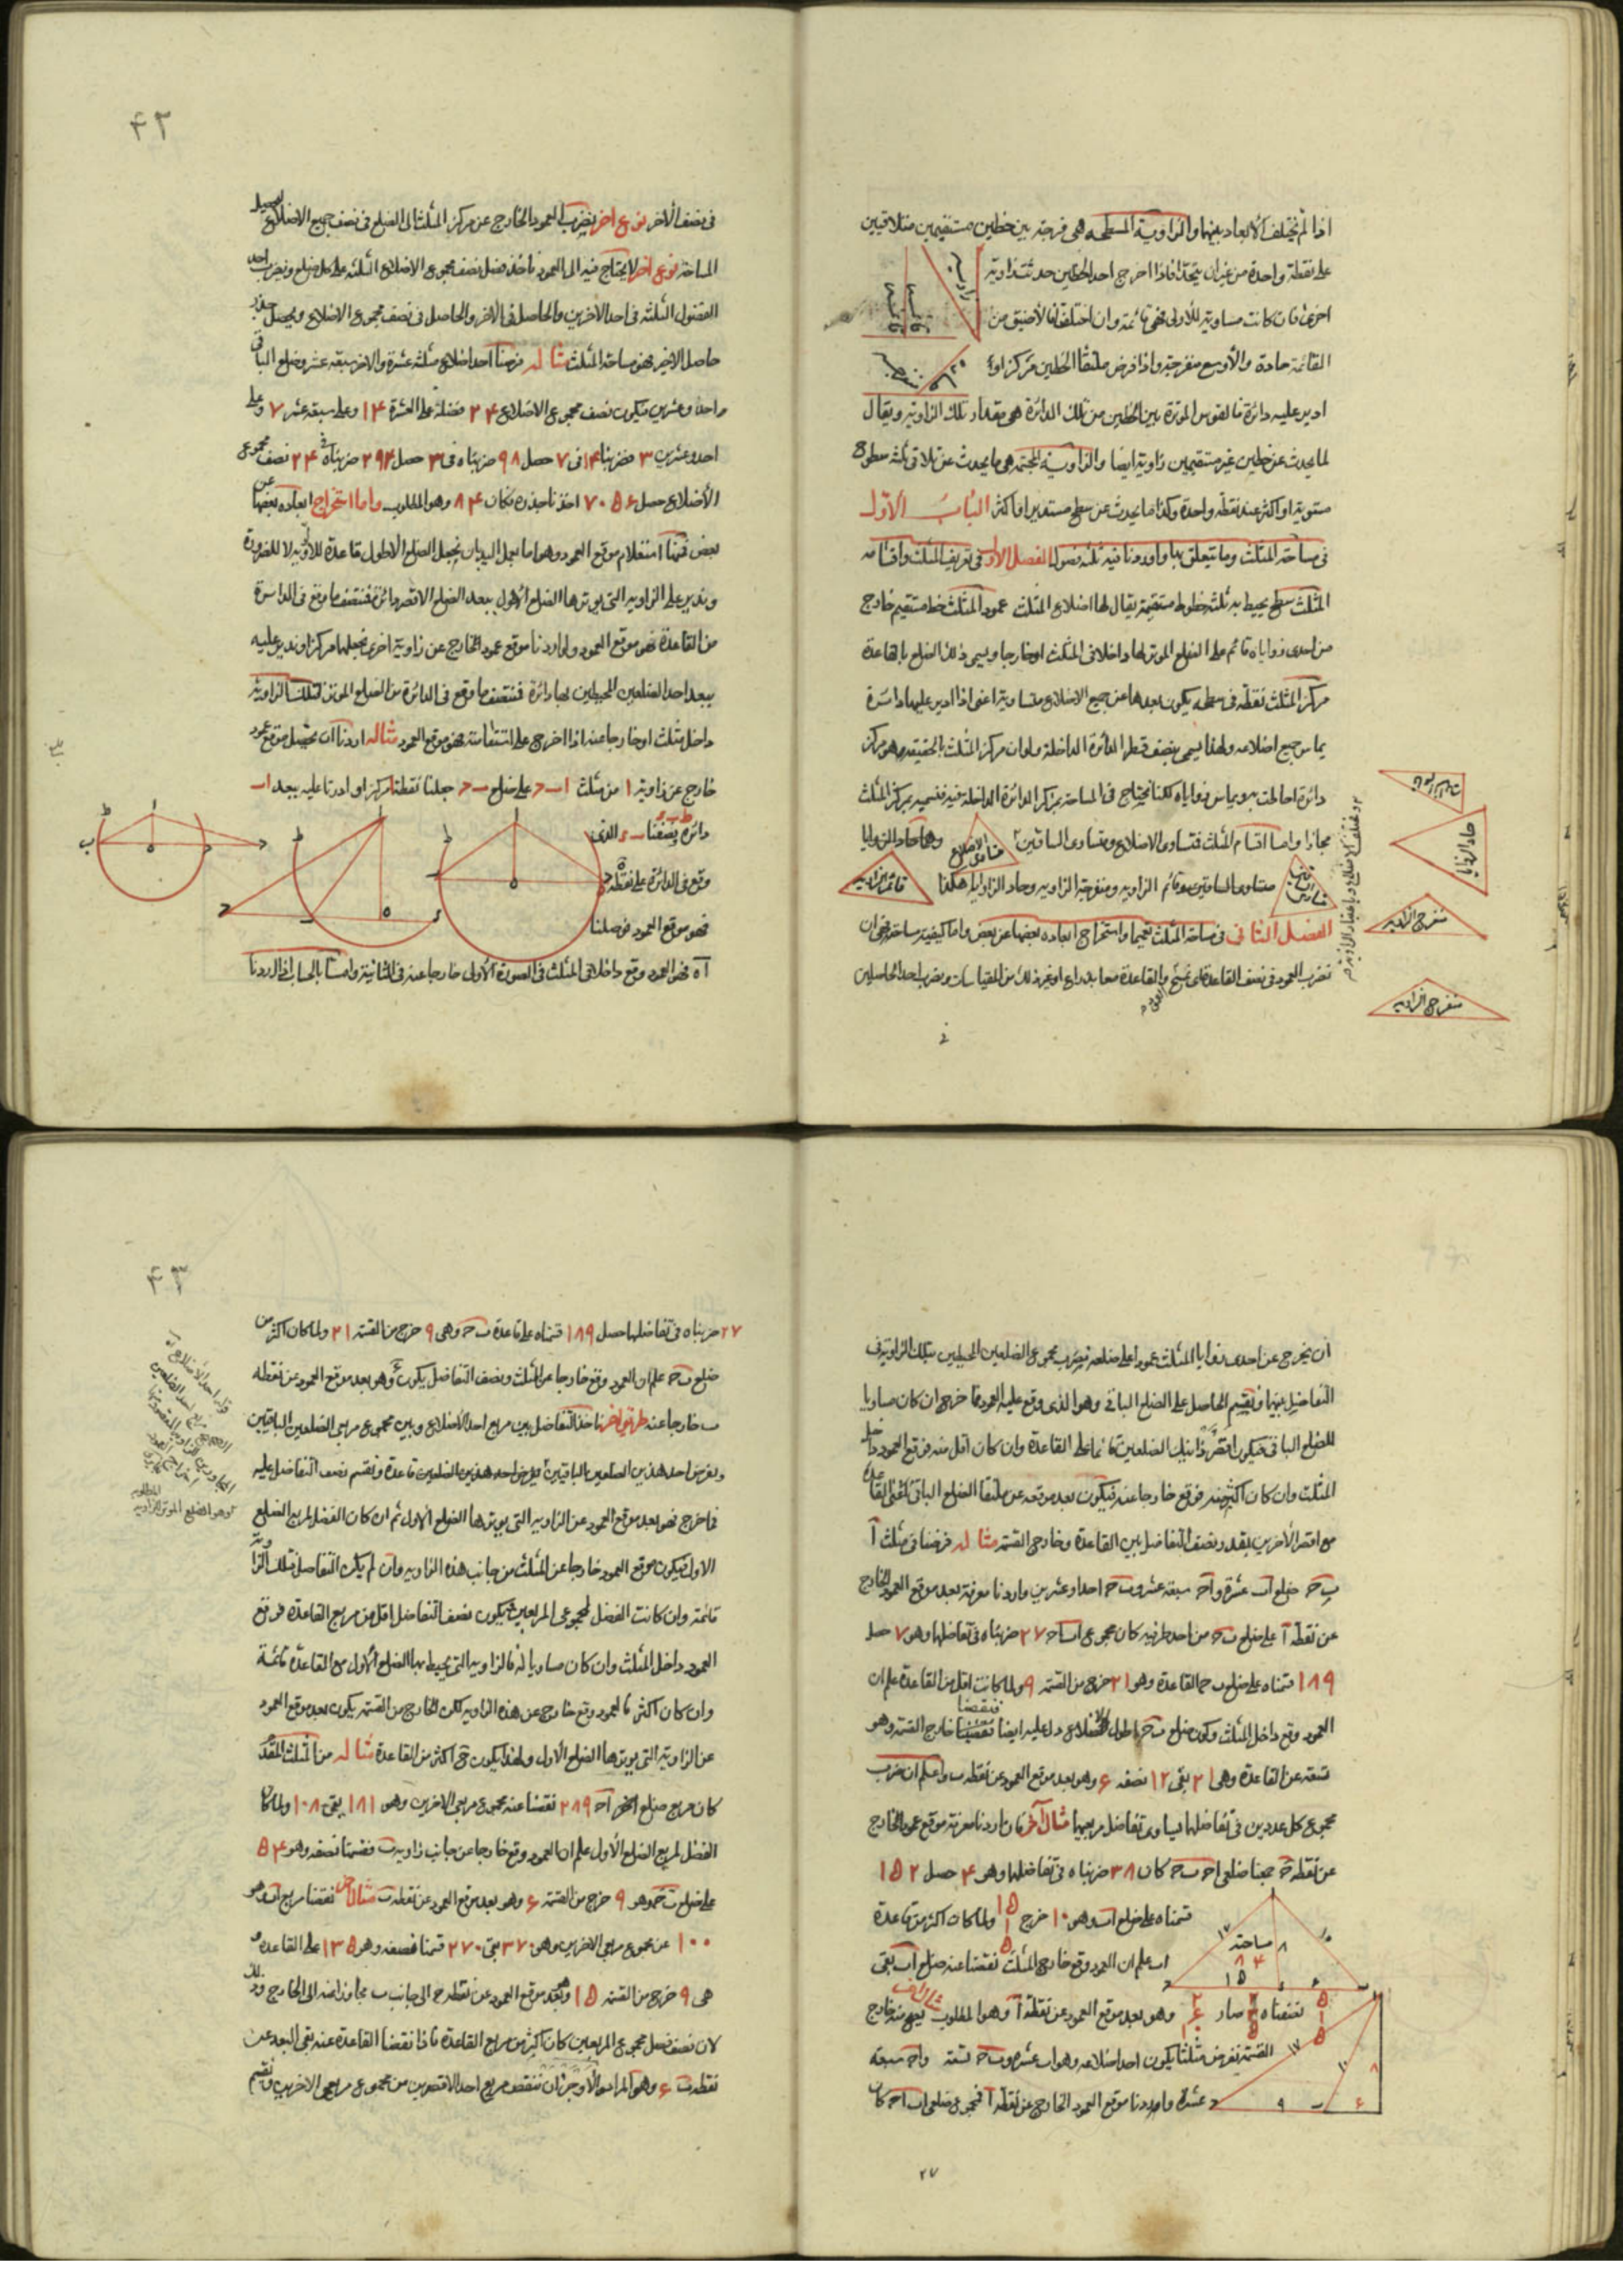 اذا لم تختلف الأبعاد بينهما والزاوية المسطحة هى فرجة بين خطين مستقيمين متلاقيين
على نقطة واحدة من غير ان يتحدا فاذا اخرج احد الخطين حدثت زاوية
اخرى فان كانت مساوية للأولى فهى قائمة وان اختلفتا فالأضيق من
القائمة حادة والأوسع منفرجة واذا فرض ملتقا الخطين مركزا و
ادير عليه دائرة فالقوس الموترة بين الخطين من تلك الدائرة هى مقدار تلك الزاوية ويقال
لما يحدث عن خطين غير مستقيمين زاوية ايضا والزاوية المجسمة هى ما يحدث عن تلاقى ثلثة سطوح
مستوية او اكثر عند نقطة واحدة وكذا ما يحدث عن سطح مستدير او اكثر الباب الأول
فى مساحة المثلث وما يتعلق بها واوردنا فيه ثلثة فصول الفصل الأول فى تعريف المثلث واقسامه
المثلث سطح يحيط به ثلثة خطوط مستقيمة يقال لها اضلاع المثلث عمود المثلث خط مستقيم خارج
من احدى زواياه قائم على الضلع الموتر لها داخلا فى المثلث او خارجا ويسمى ذلك الضلع بالقاعدة
مركز المثلث نقطة فى سطحه يكون بعدها عن جميع الاضلاع متساوية اعنى اذا ادير عليها دائرة
يماس جميع اضلاعه ولهذا يسمى بنصف قطر الدائرة الداخلة ولو ان مركز المثلث بالحقيقة هو مركز
دائرة احاطت به ويماس زواياه لكنا نحتاج فى المساحة بمركز الدائرة الداخلة فيه فنسميه بمركز المثلث
مجازا واما اقسام المثلث فمتساوى الاضلاع ومتساوى الساقين وهما حاد الزوايا
متساوى الاضلاع
متساوى الساقين وقائم الزاوية ومنفرجة الزاوية وحاد الزوايا هكذا
قائم الزاوية
الفصل الثانى فى مساحة المثلث تعميما واستخراج ابعاده بعضها عن بعض واما كيفية مساحته فهى ان
نضرب العمود فى نصف القاعدة والقاعدة معا بذراع او غير ذلك من المقياسات ونضرب احد الحاصلين
حاد الزوايا
منفرج الزاوية
منفرج الزاوية
فى
۴۲
فى نصف الأخر نوع اخر نضرب العمود الخارج عن مركز المثلث الى الضلع فى نصف جميع الاضلاع ليحصل
المساحة نوع اخر لا يحتاج فيه الى العمود ناخذ فضل نصف مجموع الاضلاع الثلثة على كل ضلع ونضرب احد
الفضول الثلثة فى احد الآخرين والحاصل فى الآخر والحاصل فى نصف مجموع الاضلاع ويحصل جذر
حاصل الاخير فهو مساحة المثلث مثاله فرضنا احد اضلاع مثلث عشرة والاخر سبعة عشر وضلع الباقى
واحدا وعشرين فيكون نصف مجموع الاضلاع ۲۴ فضله على العشرة ۱۴ وعلى سبعة عشر ۷ وعلى
احد وعشرين ۳ فضربنا ۱۴ فى ۷ حصل ۹۸ ضربناه فى ۳ حصل ۲۹۴ ضربناه فى ۲۴ نصف مجموع
الأضلاع حصل ۷۰۵۶ اخذنا جذره فكان ۸۴ وهو المطلوب واما استخراج ابعاده بعضها عن
بعض فمنها استعلام موقع العمود وهو اما بعمل اليد بان نجعل الضلع الاطول قاعدة للأولوية لا للضرورة
وندير على الزاوية التى يوترها الضلع الأطول ببعد الضلع الاقصر دائرة فننصف ما وقع فى الدائرة
من القاعدة فهو موقع العمود ولو اردنا موقع عمود الخارج عن زاوية اخرى نجعلها مركزا وندير عليه
ببعد احد الضلعين المحيطين بها دائرة فننصف ما وقع فى الدائرة من الضلع الموتر لتلك الزاوية
داخل مثلث او خارجا عنه اذا اخرج على استقامته فهو موقع العمود مثاله اردنا ان نحصل موقع عمود
خارج عن زاوية ا من مثلث ا ب ح على ضلع ب ح جعلنا نقطة ا مركزا و ادرنا عليه ببعد ا ب
دائرة ونصفنا الذى
وقع فى الدائرة على نقطة ه
فهو موقع العمود فوصلنا
اه فهو العمود وقع داخلا فى المثلث فى الصورة الأولى خارجا عنه فى الثانية واما بالحساب اذا اردنا
ان نخرج عن احدى زوايا المثلث عمودا على ضلعه نضرب مجموع الضلعين المحيطين بتلك الزاوية فى
التفاضل بينهما ونقسم الحاصل على الضلع الباقى وهو الذى وقع عليه العمود فما خرج ان كان مساويا
للضلع الباقى فيكون اقصر ذينك الضلعين قائما على القاعدة وان كان اقل منه فوقع العمود داخل
المثلث وان كان اكثر منه فوقع خارجا عنه فيكون بعد موقعه عن ملتقا الضلع الباقى اعنى القاعدة
مع اقصر الآخرين بقدر نصف التفاضل بين القاعدة وخارج القسمة مثاله فرضنا فى مثلث ا
ب ح ضلع اب عشرة و اح سبعة عشر وب ح احد وعشرين واردنا معرفة بعد موقع العمود الخارج
عن نقطة ا على ضلع ب ح من احد طرفيه كان مجموع اب اح ۲۷ ضربناه فى تفاضلها وهو ۷ حصل
۱۸۹ قسمناه على ضلع ب ح القاعدة وهو ۲۱ خرج من القسمة ۹ ولما كانت اقل من القاعدة علم ان
العمود وقع داخل المثلث ولكون ضلع ب ح اطول الاضلاع دل عليه ايضا فنقصنا خارج القسمة وهو
تسعة عن القاعدة وهى ۲۱ بقى ۱۲ نصفه ۶ وهو بعد موقع العمود عن نقطة ب واعلم ان ضرب
مجموع كل عددين فى تفاضلهما يساوى تفاضل مربعيهما مثال آخر فان اردنا معرفة موقع عمود الخارج
عن نقطة ح جمعنا ضلعى اح ب ح كان ۳۸ ضربناه فى تفاضلهما وهو ۴ حصل ۱۵۲
قسمناه على ضلع اب وهو ۱۰ خرج ۱۵ ۱ ۵ ولما كان اكثر من قاعدة
اب علم ان العمود وقع خارج المثلث نقصنا عنه ضلع اب بقى
نصفناه صار وهو بعد موقع العمود عن نقطة ا وهو المطلوب
القسمة نفرض مثلثا يكون احد اضلاعه وهو اب عشرة وب ح تسعة واح سبعة
عشرة واردنا موقع العمود الخارج عن نقطة ا فمجموع ضلعى اب اح كان
مساحته
۸۴
۲۷
۴۳
۲۷ ضربناه فى تفاضلها حصل ۱۸۹ قسمناه على قاعدة ب ح وهى ۹ خرج من القسمة ۲۱ ولما كان اكثر من
ضلع ب ح علم ان العمود وقع خارجا عن المثلث ونصف التفاضل يكون ۶ وهو بعد موقع العمود عن نقطة
ب خارجا عنه طريق اخر ناخذ التفاضل بين مربع احد الأضلاع وبين مجموع مربعى الضلعين الباقيين
ونفرض احد هذين الضلعين الباقيين قاعدة ونقسم نصف التفاضل عليه
فما خرج فهو بعد موقع العمود عن الزاوية التى يوترها الضلع الأول ثم ان كان الفضل لمربع الضلع
الاول فيكون موقع العمود خارجا عن المثلث من جانب هذه الزاوية وان لم يكن التفاضل فتلك الزاوية
قائمة وان كانت الفضل لمجموعى المربعين فيكون نصف التفاضل اقل من مربع القاعدة فوقع
العمود داخل المثلث وان كان مساويا له فالزاوية التى يحيط بها الضلع الأول مع القاعدة قائمة
وان كان اكثر فالعمود وقع خارج عن هذه الزاوية لكن الخارج من القسمة يكون بعد موقع العمود
عن الزاوية التى يوترها الضلع الأول ولهذا يكون ح اكثر من القاعدة مثاله من المثلث المتقدم
كان مربع ضلع اح ۲۸۹ نقصنا عنه مجموع مربعى الاخرين وهو ۱۸۱ بقى ۱۰۸ ولما كان
الفضل لمربع الضلع الأول علم ان العمود وقع خارجا عن جانب زاوية ب فقسمنا نصفه وهو ۵۴
على ضلع ب ح وهو ۹ خرج من القسمة ۶ وهو بعد موقع العمود عن نقطة ب مثال آخر نقصنا مربع اب وهو
۱۰۰ عن مجموع مربعى الاخرين وهو ۳۷۰ بقى ۲۷۰ قسمنا نصفه وهو ۱۳۵ على القاعدة و
هى ۹ خرج من القسمة ۱۵ وهو بعد موقع العمود عن نقطة ح الى جانب ب مجاوزا عنه الى الخارج وذلك
لان نصف فضل مجموع المربعين كان اكثر من مربع القاعدة فاذا نقصنا القاعدة عنه بقى البعد عن
نقطة ب ۶ وهو المراد والأوجز ان ننقص مربع احد الاقصرين من مجموع مربعى الاخرين ونقسم